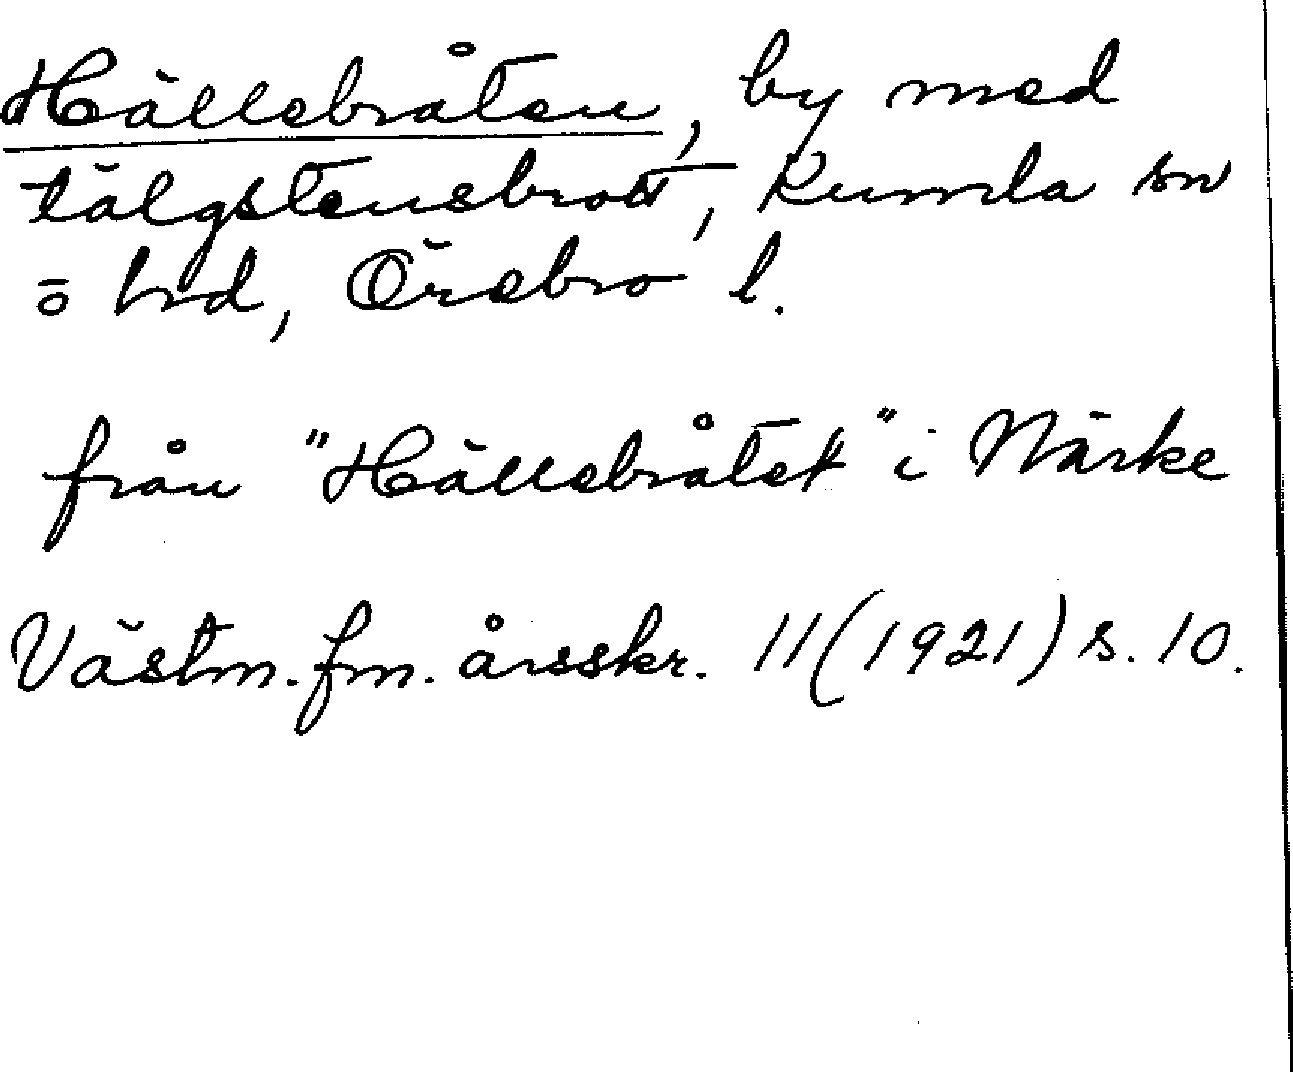 Hällebråten, by med
tälgstensbrott, Kumla sn
o hrd, Örebro l.
från "Hällebråtet" i Närke
Västm. fm. årsskr. 11 (1921) s. 10.